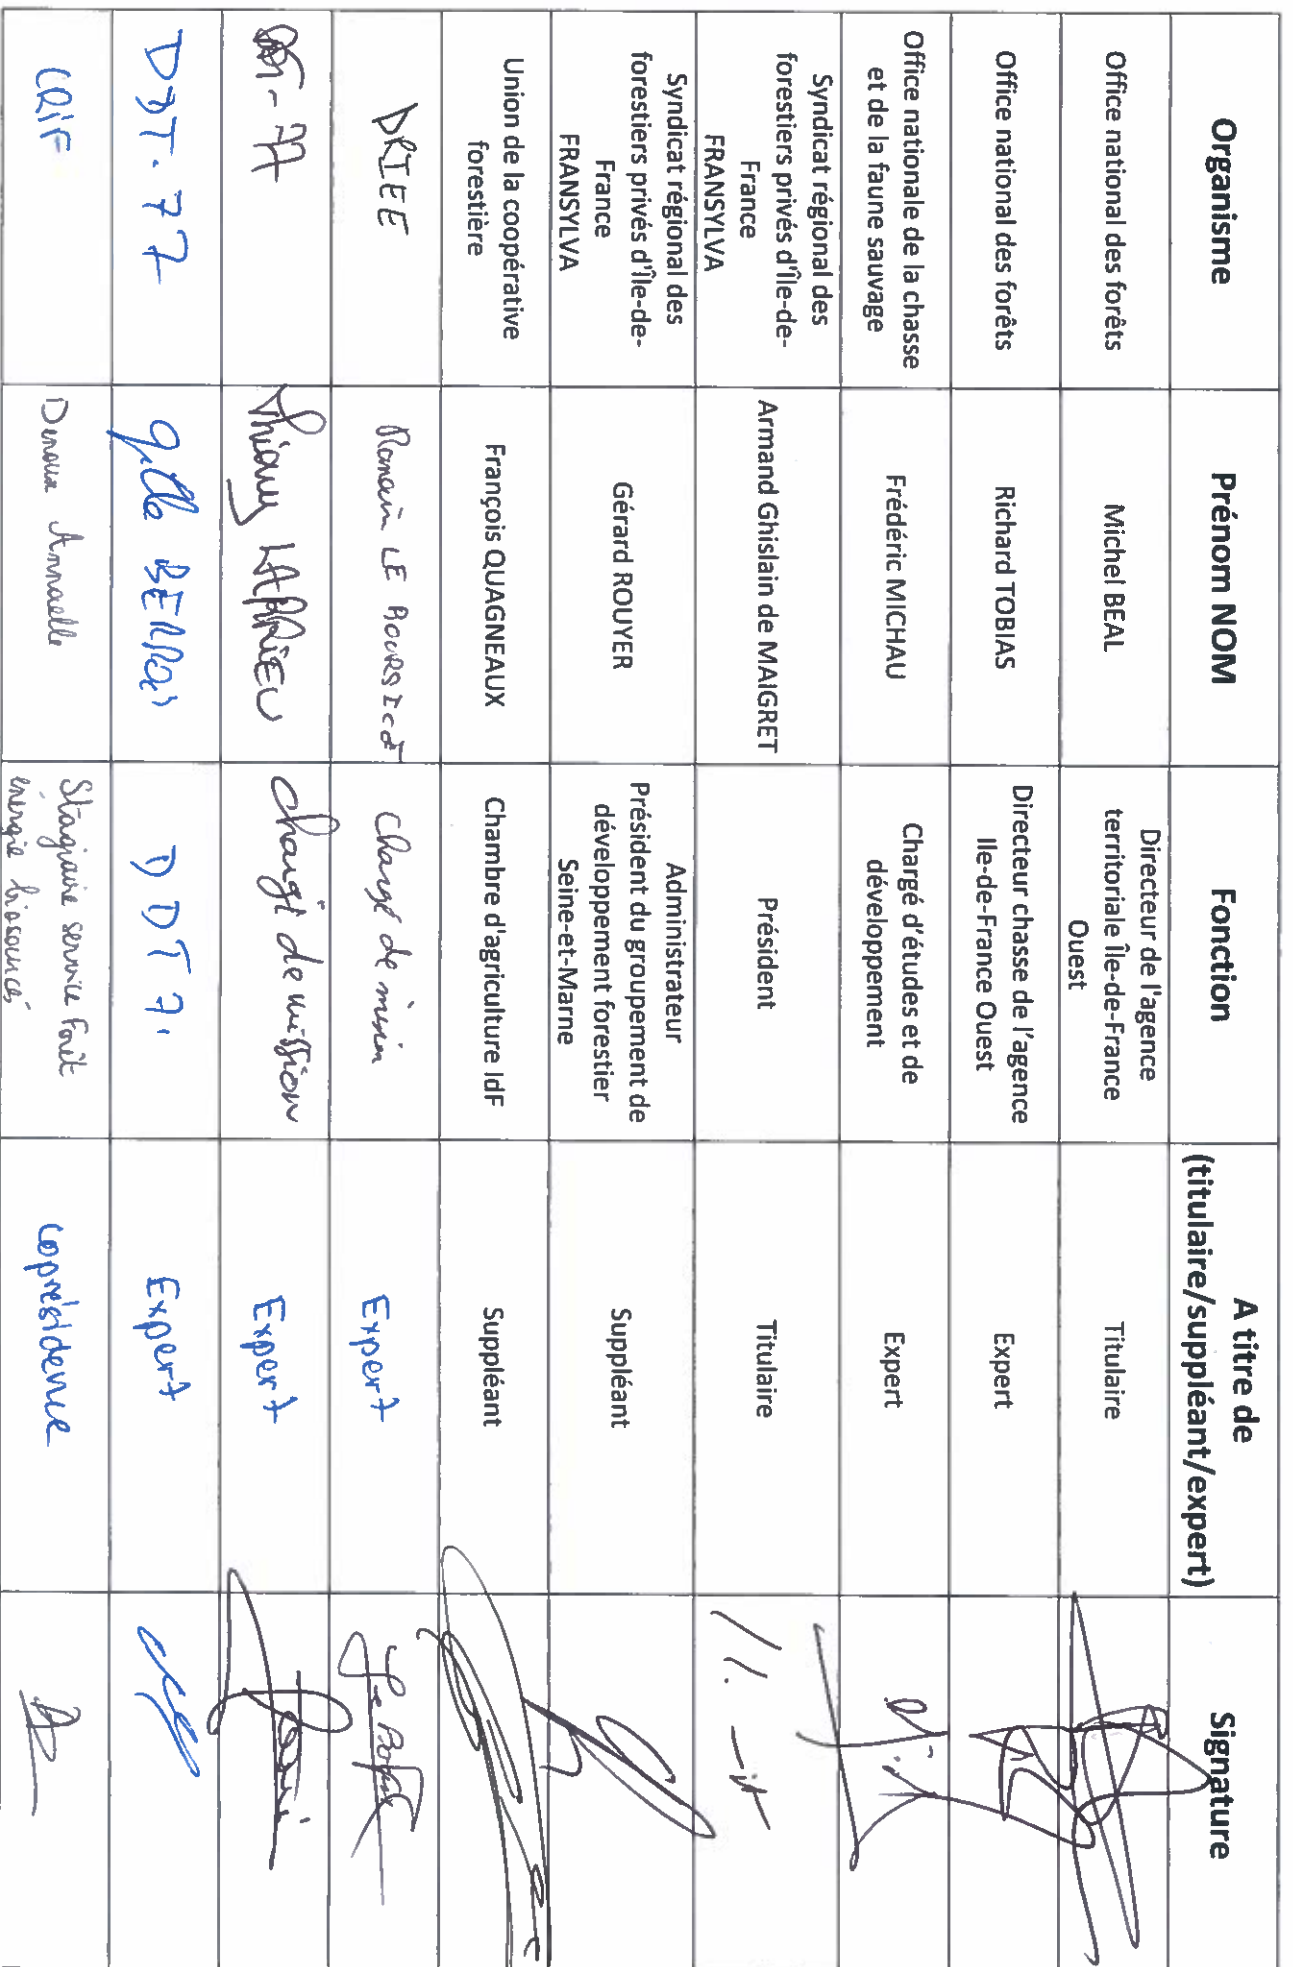 Organisme
Prénom NOM
Fonction
A titre de
(titulaire/suppléant/expert)
Signature
Office national des forêts
Michel BEAL
Directeur de l'agence
territoriale Île-de-France
Ouest
Titulaire
Office national des forêts
Richard TOBIAS
Directeur chasse de l'agence
Ile-de-France Ouest
Expert
Office nationale de la chasse
et de la faune sauvage
Frédéric MICHAU
Chargé d'études et de
développement
Expert
Syndicat régional des
forestiers privés d'Île-de-
France
FRANSYLVA
Armand Ghislain de MAIGRET
Président
Titulaire
Syndicat régional des
forestiers privés d'Île-de-
France
FRANSYLVA
Gérard ROUYER
Administrateur
Président du groupement de
développement forestier
Seine-et-Marne
Suppléant
Union de la coopérative
forestière
François QUAGNEAUX
Chambre d'agriculture IdF
Suppléant
DRIEE
LE
Chargé de
Expert
77
Chargé de mission
Expert
DDT.77
DDT
Expert
CRIF
Denoux Annaelle
Stagiaire service Forêt
énergie biosourcés
coprésidence